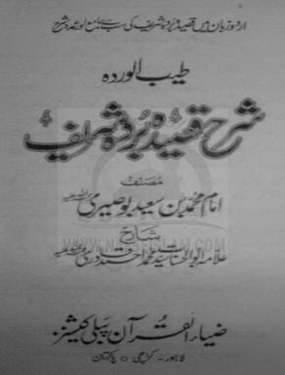 اردو زبان میں قصیدہ بردہ شریف کی سب سے
طیب الوردہ
شرح قصیدہ بردہ شریف
مصنف
امام محمد بن سعید بوصیری
شارح
علامہ ابوالحسنات سید محمد احمد قادری
ضیاء القرآن پبلی کیشنز
لاہور - کراچی ○ پاکستان